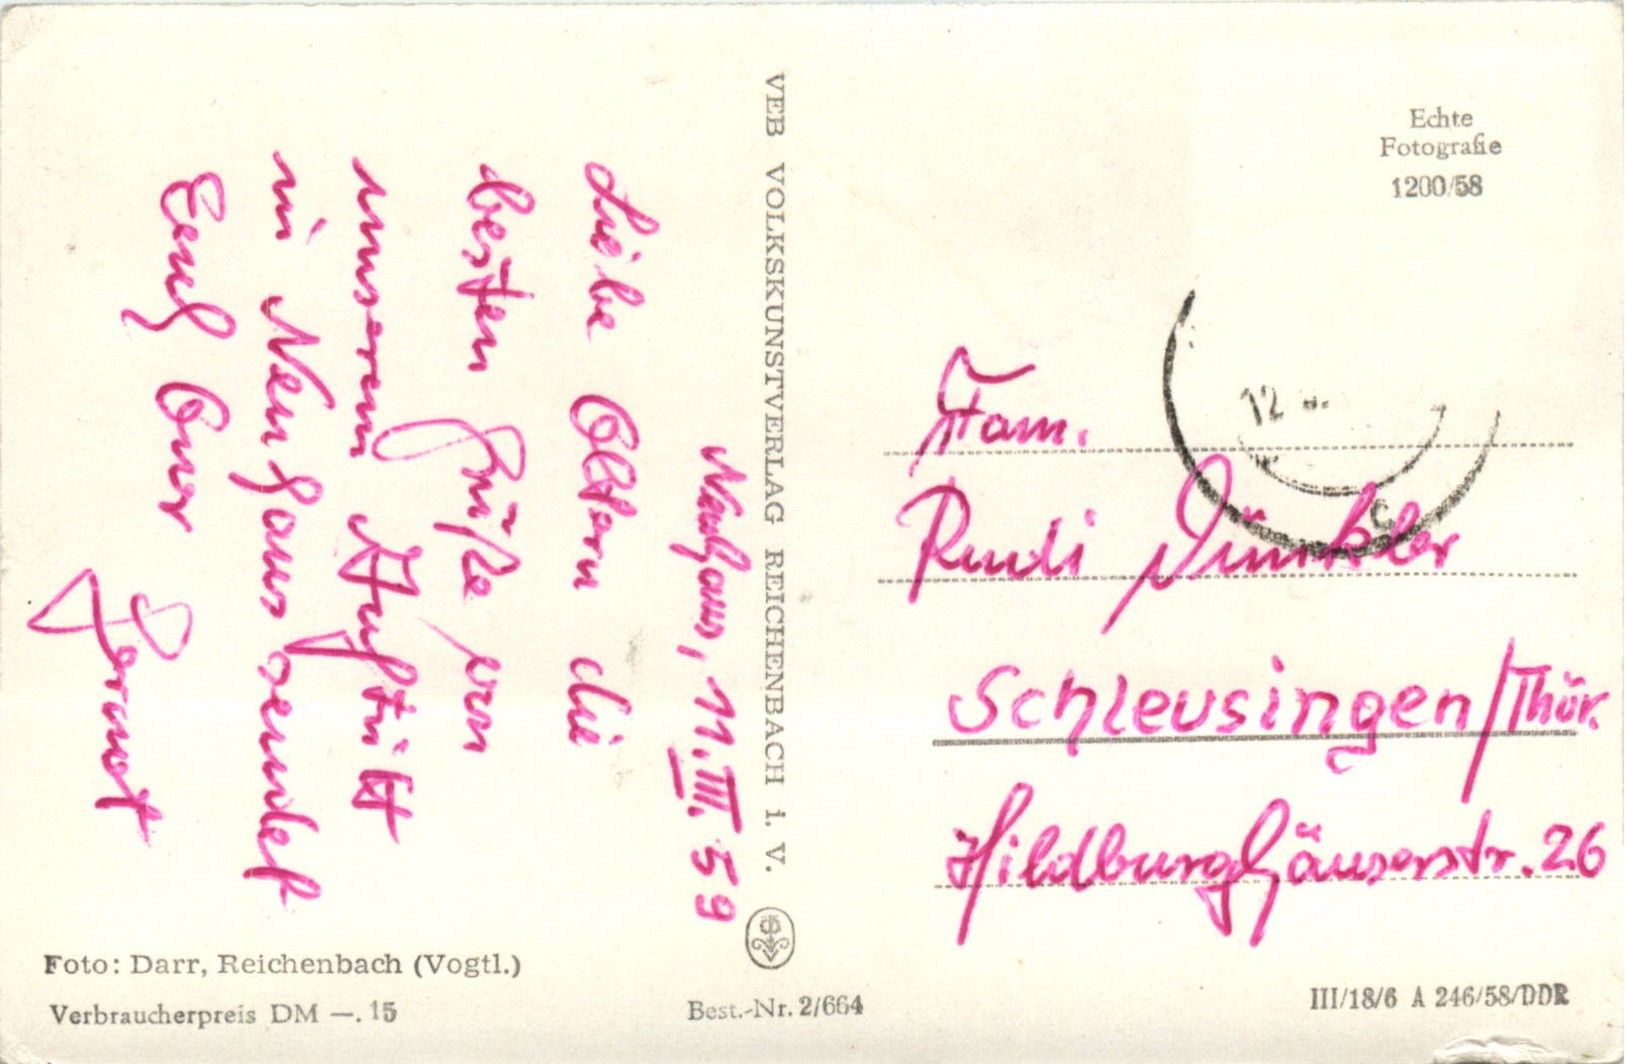 Neuhaus, 11.III.59
Liebe Eltern die
besten Grüße von
unserem Auftritt
in Neuhaus sendet
Euch Euer
Gernot
VEB VOLKSKUNSTVERLAG REICHENBACH i. V.
Echte
Fotografie
1200/58
12
Fam.
Rudi Dünkler
Schleusingen/Thür.
Hildburghäuserstr. 26
Foto: Darr, Reichenbach (Vogtl.)
Verbraucherpreis DM —.15
Best.-Nr. 2/664
III/18/6 A 246/58/DDR